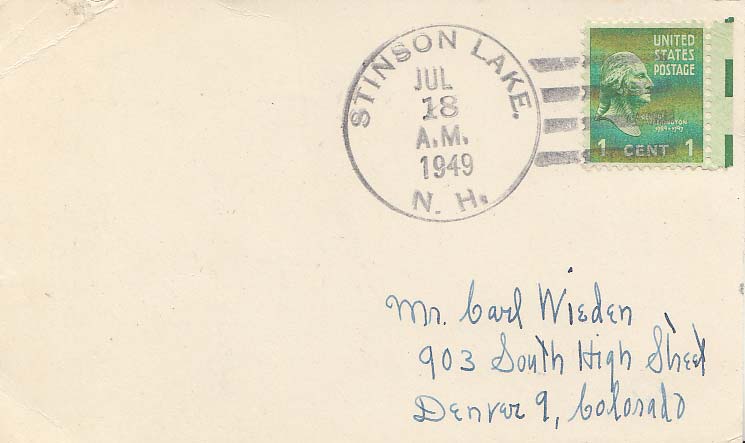 STINSON LAKE.
JUL
18
A.M.
1949
N. H.
UNITED
STATES
POSTAGE
1 CENT 1
Mr. Carl Wieden
903 South High Street
Denver 9, Colorado